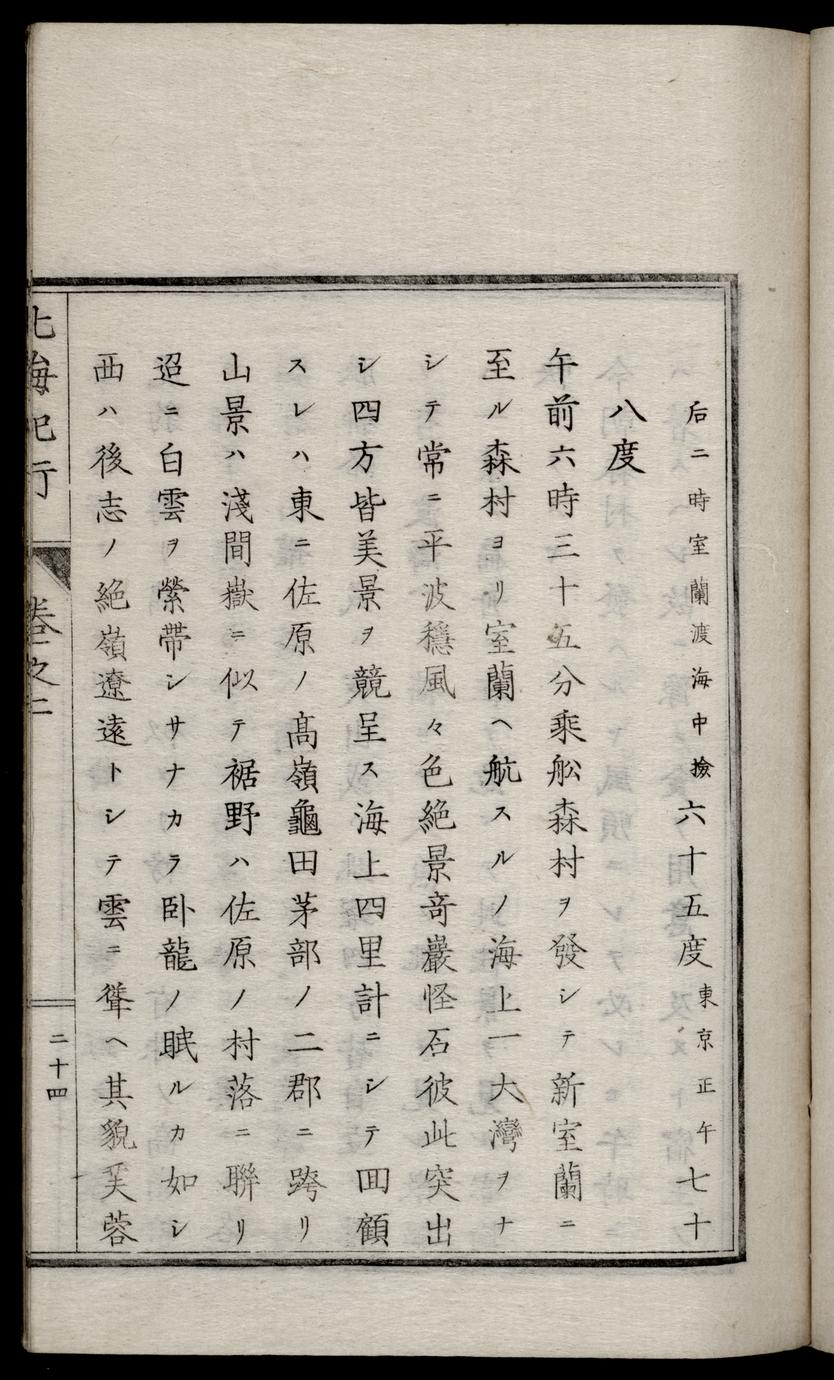 后二時室蘭渡海中撿六十五度東京正午七十
八度
午前六時三十五分乘舩森村ヲ發シテ新室蘭ニ
至ル森村ヨリ室蘭ヘ航スルノ海上一大灣ヲナ
シテ常ニ平波穩風々色絶景竒巖怪石彼此突出
シ四方皆美景ヲ競呈ス海上四里計ニシテ囬顧
スレハ東ニ佐原ノ髙嶺龜田茅部ノ二郡ニ跨リ
山景ハ淺間嶽ニ似テ裾野ハ佐原ノ村落ニ聯リ
迢ニ白雲ヲ縈帶シサナカラ卧龍ノ眠ルカ如シ
西ハ後志ノ絶嶺遼遠トシテ雲ニ聳ヘ其貌芙蓉
北海紀行
卷之二
二十四